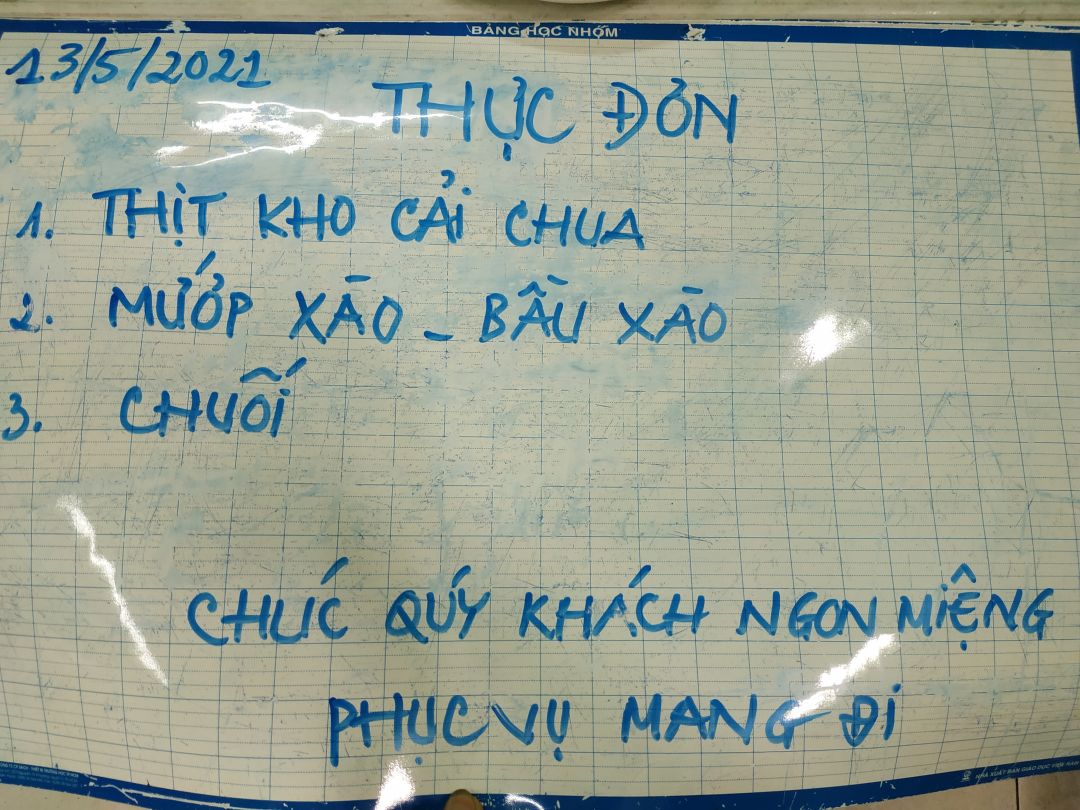 BẢNG HỌC NHÓM
13/5/2021
THỰC ĐƠN
1. THỊT KHO CẢI CHUA
2. MƯỚP XÀO - BẦU XÀO
3. CHUỐI
CHÚC QUÝ KHÁCH NGON MIỆNG
PHỤC VỤ MANG ĐI
NHÀ XUẤT BẢN GIÁO DỤC VIỆT NAM